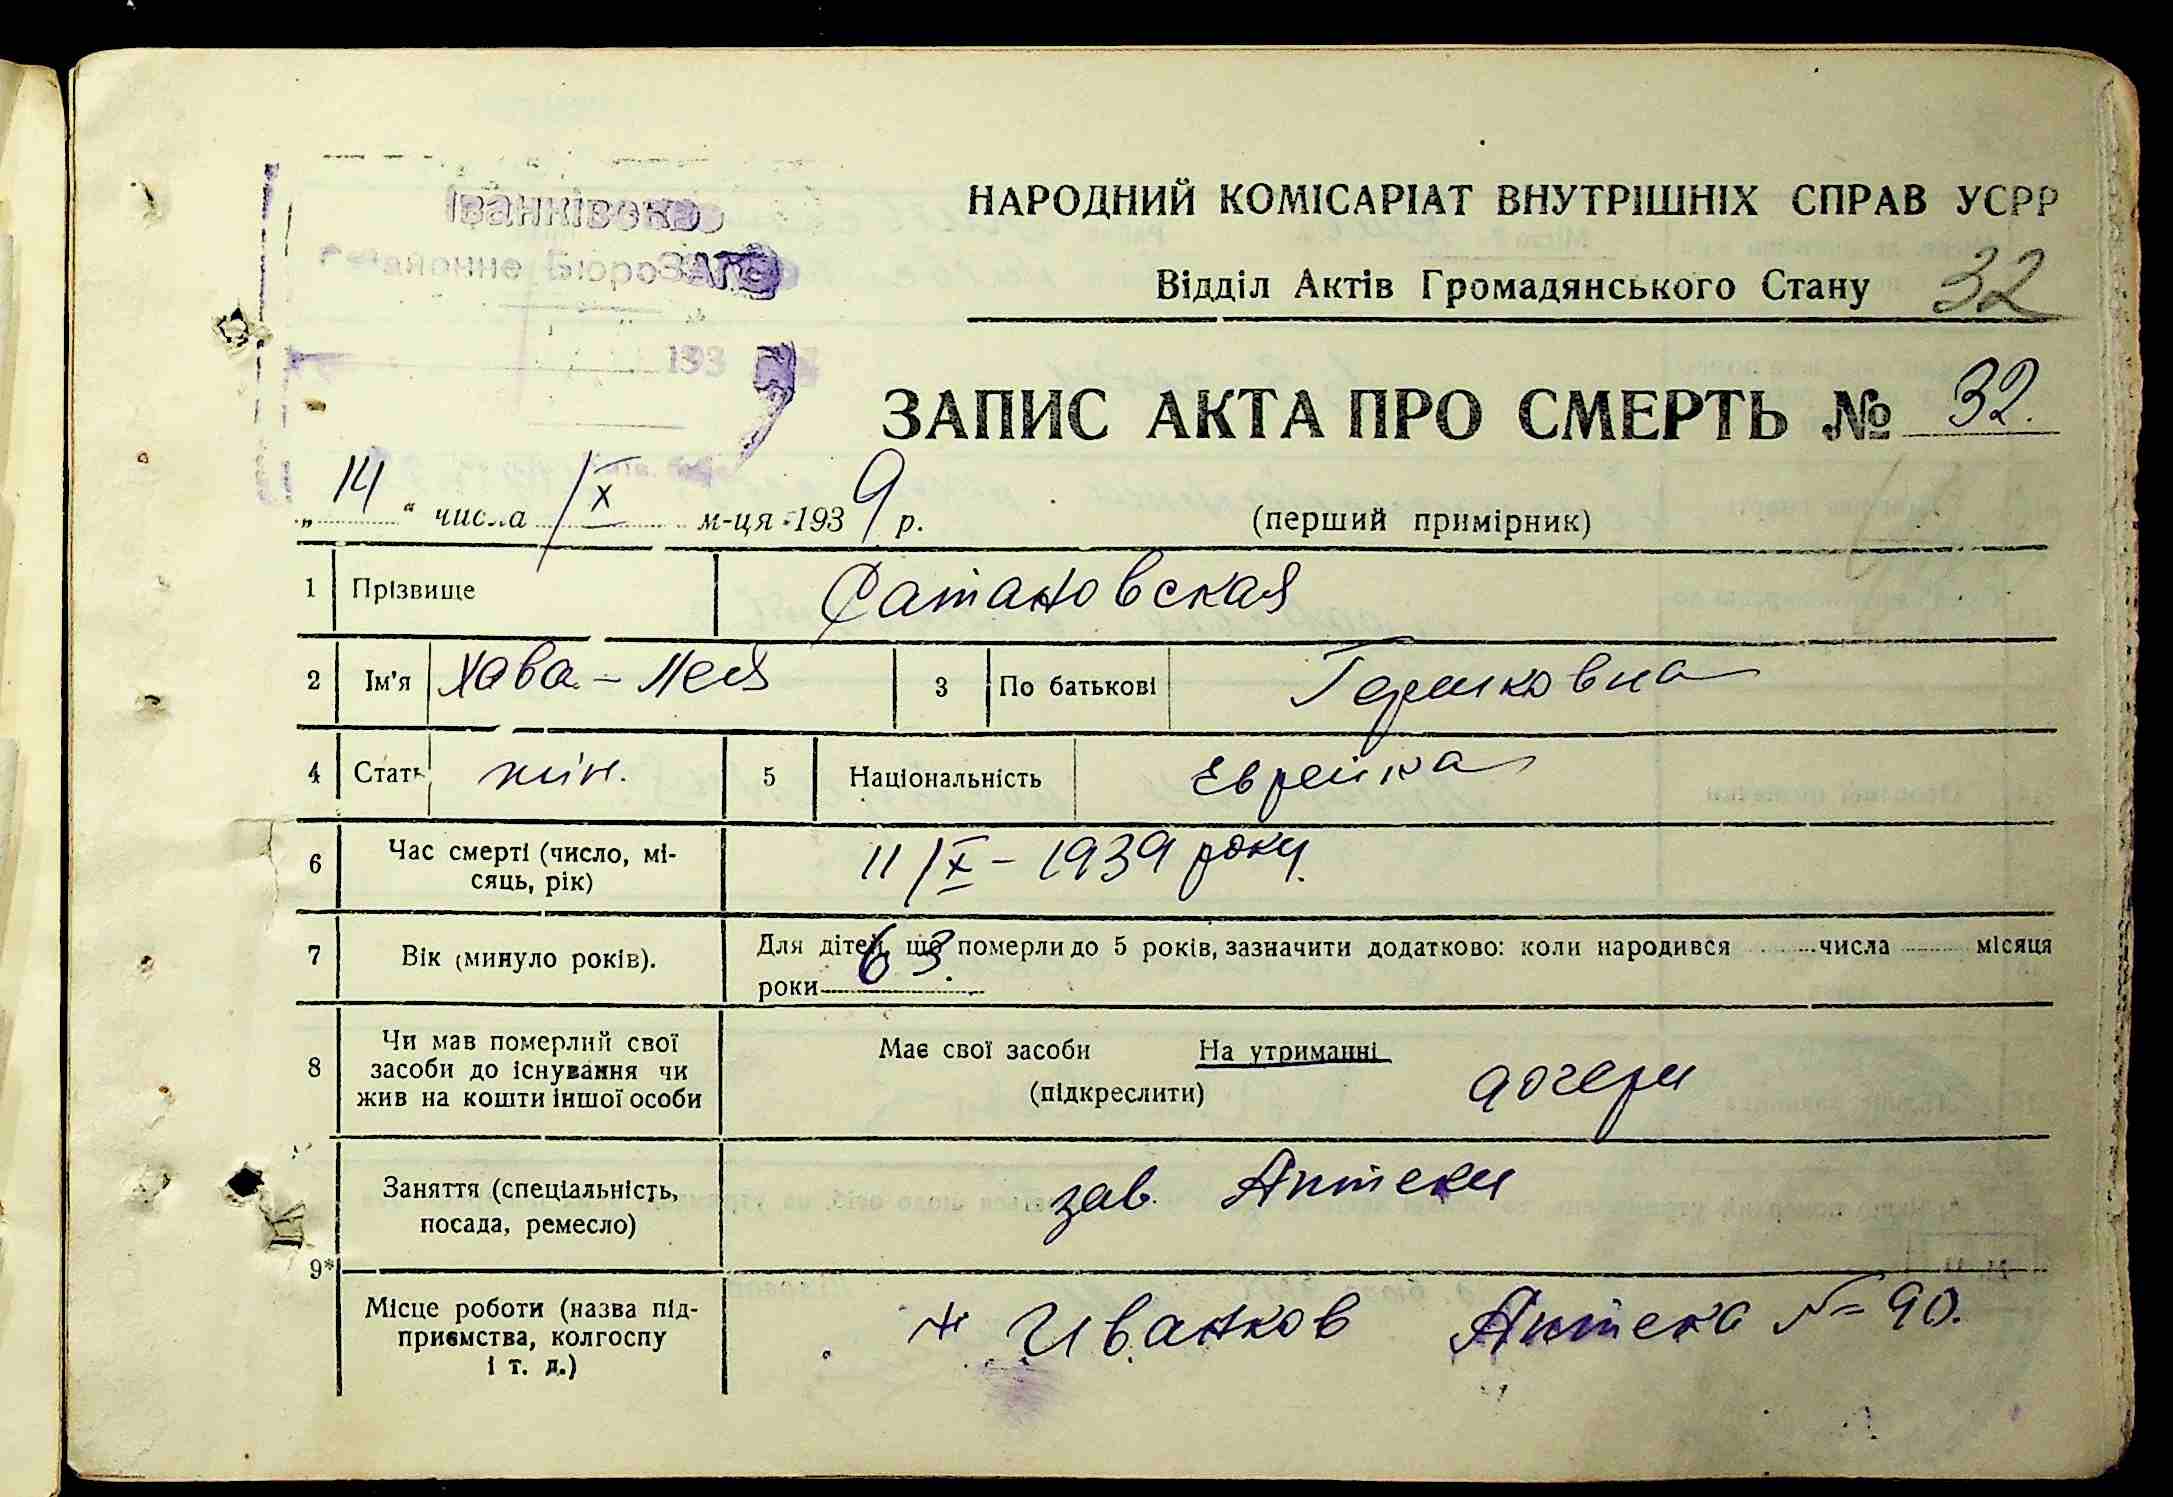 Іванківське
Районне Бюро ЗАГС
193
НАРОДНИЙ КОМІСАРІАТ ВНУТРІШНІХ СПРАВ УСРР
Відділ Актів Громадянського Стану 32
ЗАПИС АКТА ПРО СМЕРТЬ № 32.
„14“ числа /X м-ця 1939 р. (перший примірник)
1 Прізвище Сатановская
2 Ім'я Хава-Лея 3 По батькові Гершковна
4 Стать жін. 5 Національність Еврейка
6 Час смерті (число, мі-
сяць, рік) 11/X-1939 року.
7 Вік (минуло років). Для дітей, що померли до 5 років, зазначити додатково: коли народився числа місяця
роки 63.
8 Чи мав померлий свої
засоби до існування чи
жив на кошти іншої особи
Має свої засоби На утриманні дочери
(підкреслити)
9* Заняття (спеціальність,
посада, ремесло) зав. Аптеки
Місце роботи (назва під-
приємства, колгоспу
і т. д.) м Иванков Аптека №=90.